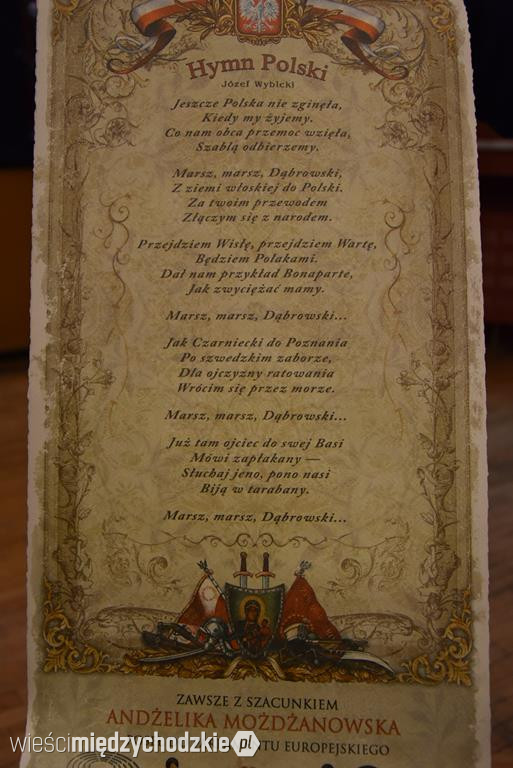 Hymn Polski
Józef Wybicki
Jeszcze Polska nie zginęła,
Kiedy my żyjemy.
Co nam obca przemoc wzięła,
Szablą odbierzemy.
Marsz, marsz, Dąbrowski,
Z ziemi włoskiej do Polski.
Za twoim przewodem
Złączym się z narodem.
Przejdziem Wisłę, przejdziem Wartę,
Będziem Polakami.
Dał nam przykład Bonaparte,
Jak zwyciężać mamy.
Marsz, marsz, Dąbrowski...
Jak Czarniecki do Poznania
Po szwedzkim zaborze,
Dla ojczyzny ratowania
Wrócim się przez morze.
Marsz, marsz, Dąbrowski...
Już tam ojciec do swej Basi
Mówi zapłakany —
Słuchaj jeno, pono nasi
Biją w tarabany.
Marsz, marsz, Dąbrowski...
ZAWSZE Z SZACUNKIEM
ANDŻELIKA MOŻDŻANOWSKA
EUROPEJSKIEGO
wieścimiędzychodzkie.pl